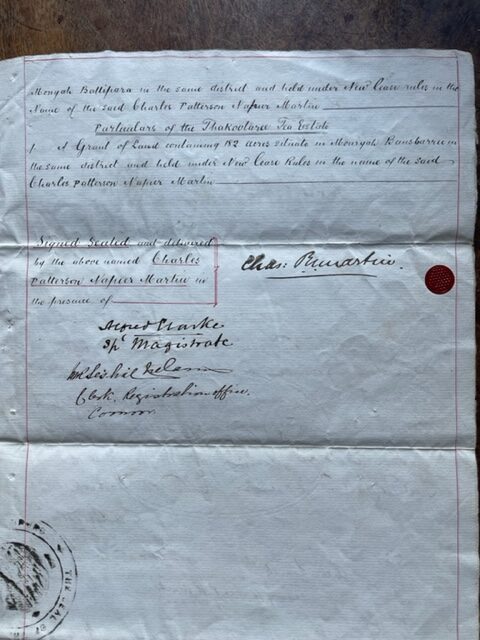 Mouzah Battipara in the same district and held under New Lease rules in the
Name of the said Charles Patterson Napier Martin
Particulars of the Thakoobaree Tea Estate
1 A Grant of Land containing 182 acres situate in Mouzah Bansbarrie in
the same district and held under New Lease Rules in the name of the said
Charles Patterson Napier Martin
Signed Sealed and delivered
by the above named Charles
Patterson Napier Martin in
the presence of
Chas: P. N. Martin
Clarke
Magistrate
Clerk, Registration office,
Coonoor
THE SEAL OF